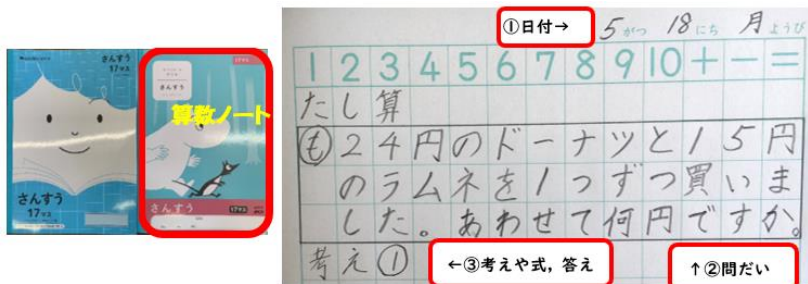 さんすう
17マス
さんすう
17マス
さんすう
算数ノート
さんすう
17マス
①日付→
5がつ 18にち 月ようび
1 2 3 4 5 6 7 8 9 10 + − =
たし算
も 24円のドーナツと15円
のラムネを1つずつ買いま
した。あわせて何円ですか。
考え①
←③考えや式，答え
↑②問だい